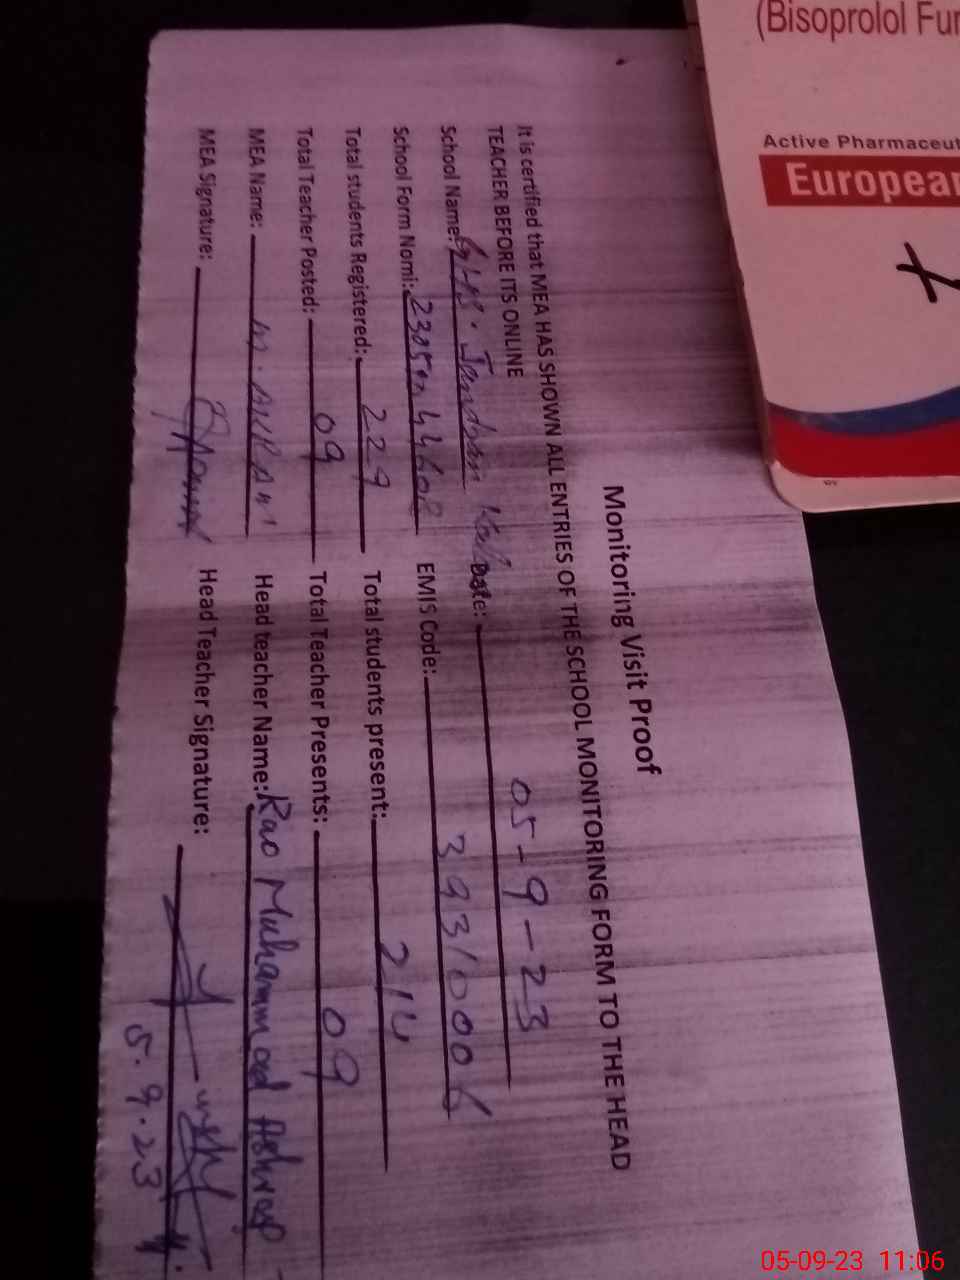 Monitoring Visit Proof
It is certified that MEA HAS SHOWN ALL ENTRIES OF THE SCHOOL MONITORING FORM TO THE HEAD
TEACHER BEFORE ITS ONLINE
School Name: Date: 05-9-23
School Form Nomi: EMIS Code: 39310006
Total students Registered: 229 Total students present: 214
Total Teacher Posted: 09 Total Teacher Presents: 09
MEA Name: Head teacher Name: Rao Muhammad Ashraf
MEA Signature: Head Teacher Signature:
5.9.23
(Bisoprolol Fu
Active Pharmaceut
European
05-09-23 11:06